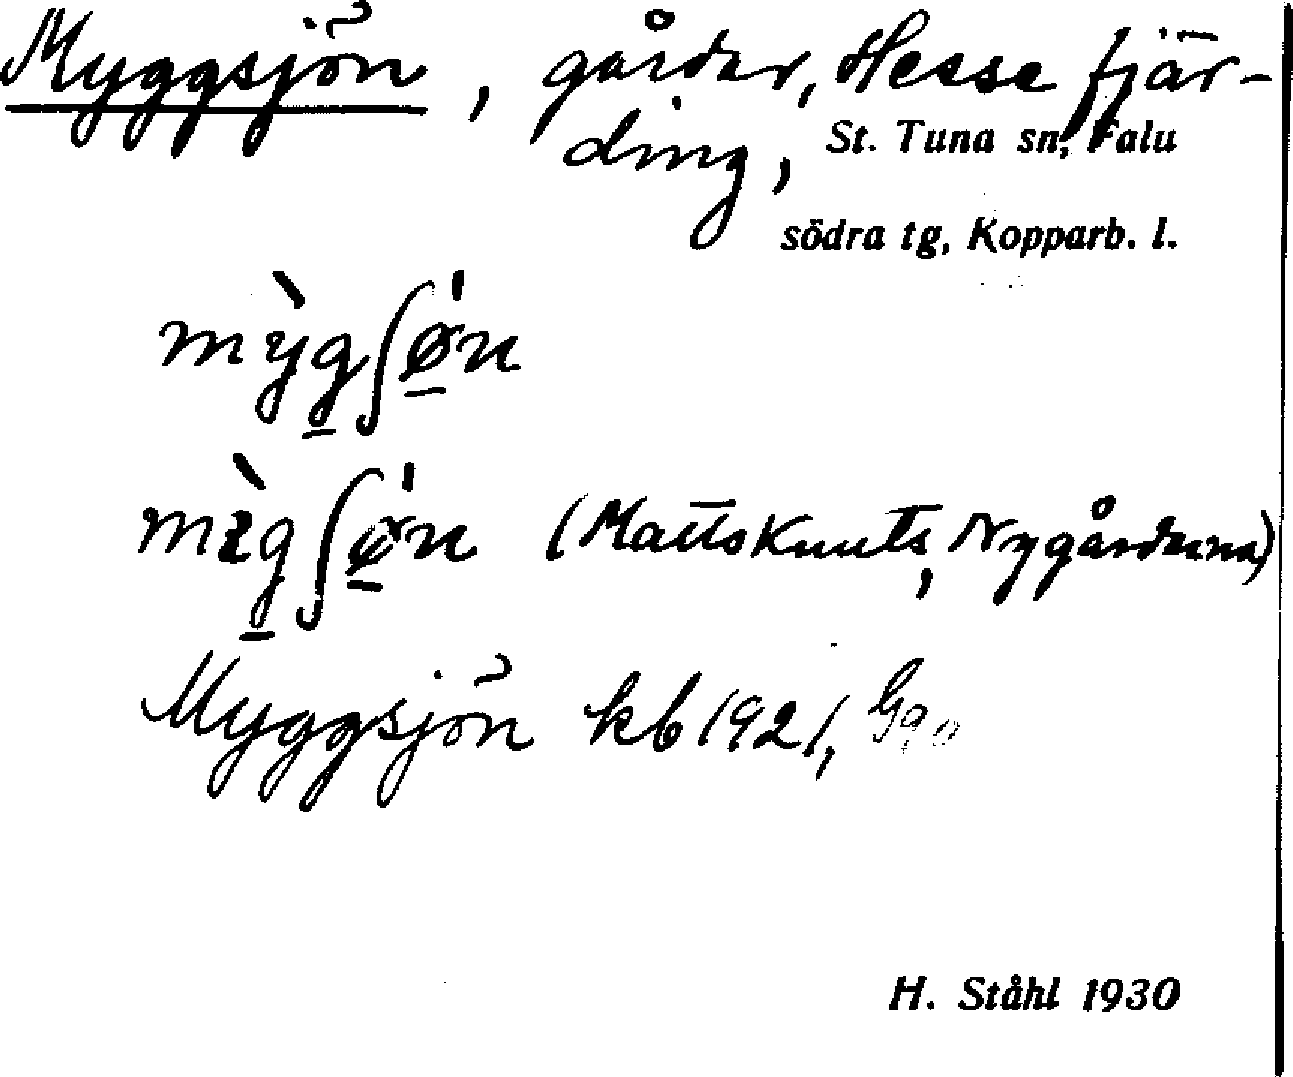 Myggsjön, gårdar, Hesse fjär-
ding, St. Tuna sn, Falu
södra tg, Kopparb. l.
mỳgʃǿ̲n
mìgʃǿ̲n (Matts Knuts, Nygårdarna)
Myggsjön kb 1921,
H. Ståhl 1930